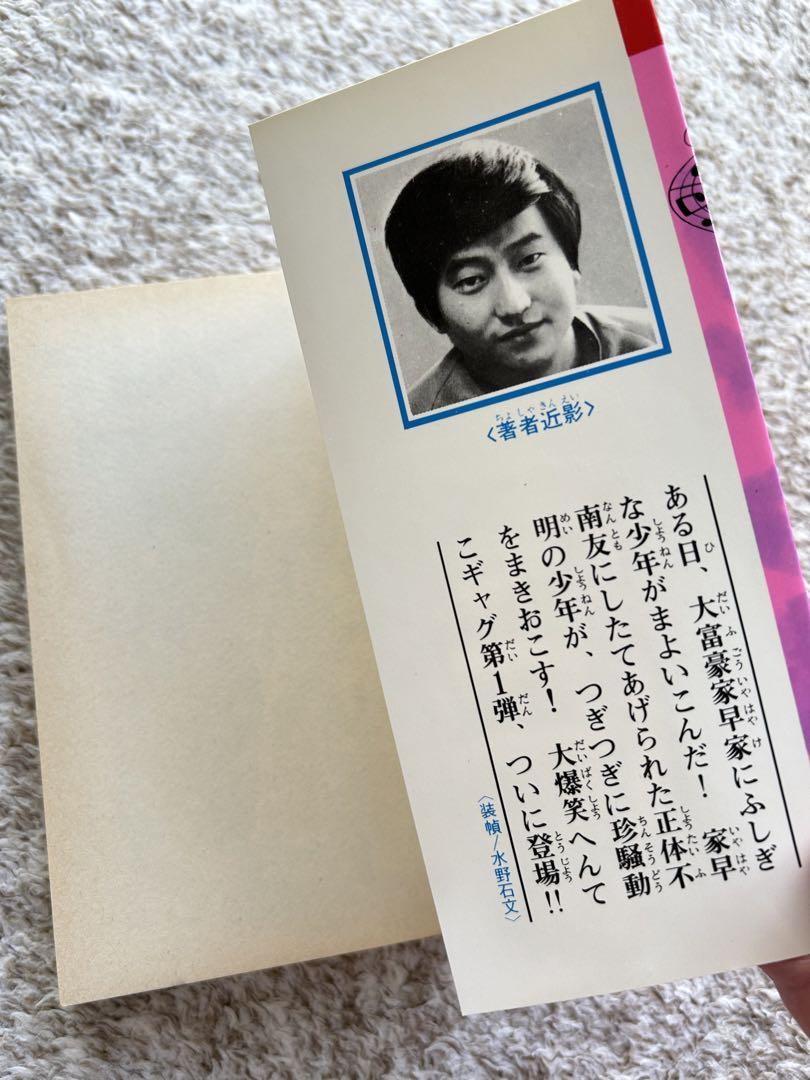 ちょしゃきんえい
〈著者近影〉
ある日、大富豪家早家にふしぎ
な少年がまよいこんだ！　家早
南友にしたてあげられた正体不
明の少年が、つぎつぎに珍騒動
をまきおこす！　大爆笑へんて
こギャグ第1弾、ついに登場!!
〈装幀/水野石文〉